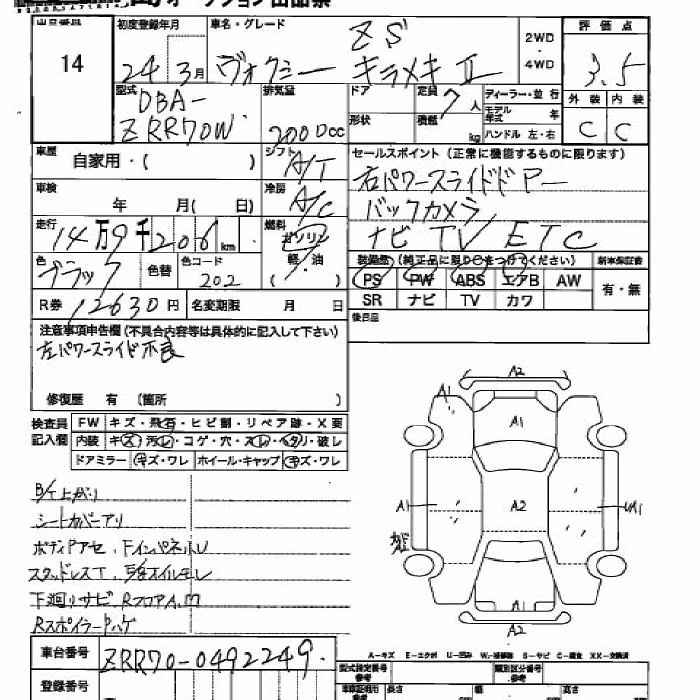 オークション出品票
出品番号 初度登録年月 車名・グレード ZS 2WD・4WD 評価点
14 24 3月 ヴォクシー キラメキⅡ 3.5
型式 DBA-ZRR70W 排気量 2000cc ドア 形状 定員 7人 積載 kg ディーラー・並行 モデル年式 年 ハンドル 左・右 外装 C 内装 C
車歴 自家用・( ) シフト A/T セールスポイント (正常に機能するものに限ります)
右パワースライドドアー
車検 年 月( 日) 冷房 A/C バックカメラ
走行 14万9千206km 燃料 ガソリン 軽・油 ( ) ナビ TV ETC
装備品 (純正品に限り○をつけてください) 新車保証書
色 ブラック 色替 色コード 202
PS PW ABS エアB AW 有・無
SR ナビ TV カワ
R券 12630円 名変期限 月 日 後日品
注意事項申告欄 (不具合内容等は具体的に記入して下さい)
左パワースライド不良
修復歴 有 (箇所 )
検査員記入欄 FW キズ・飛石・ヒビ割・リペア跡・X要
内装 キズ・汚レ・コゲ・穴・スレ・ヘタリ・破レ
ドアミラー キズ・ワレ ホイール・キャップ キズ・ワレ
A2
A1
A1
A1 A2 A1
A1
A2
シートカバーアリ
スタッドレスT
下廻リサビ
Rスポイラーハゲ
A-キズ E-エクボ U-凹み W-補修跡 S-サビ C-腐食 XX-交換済
車台番号 ZRR70-0492249
登録番号
型式指定番号 参考 類別区分番号 参考
長さ 幅 高さ